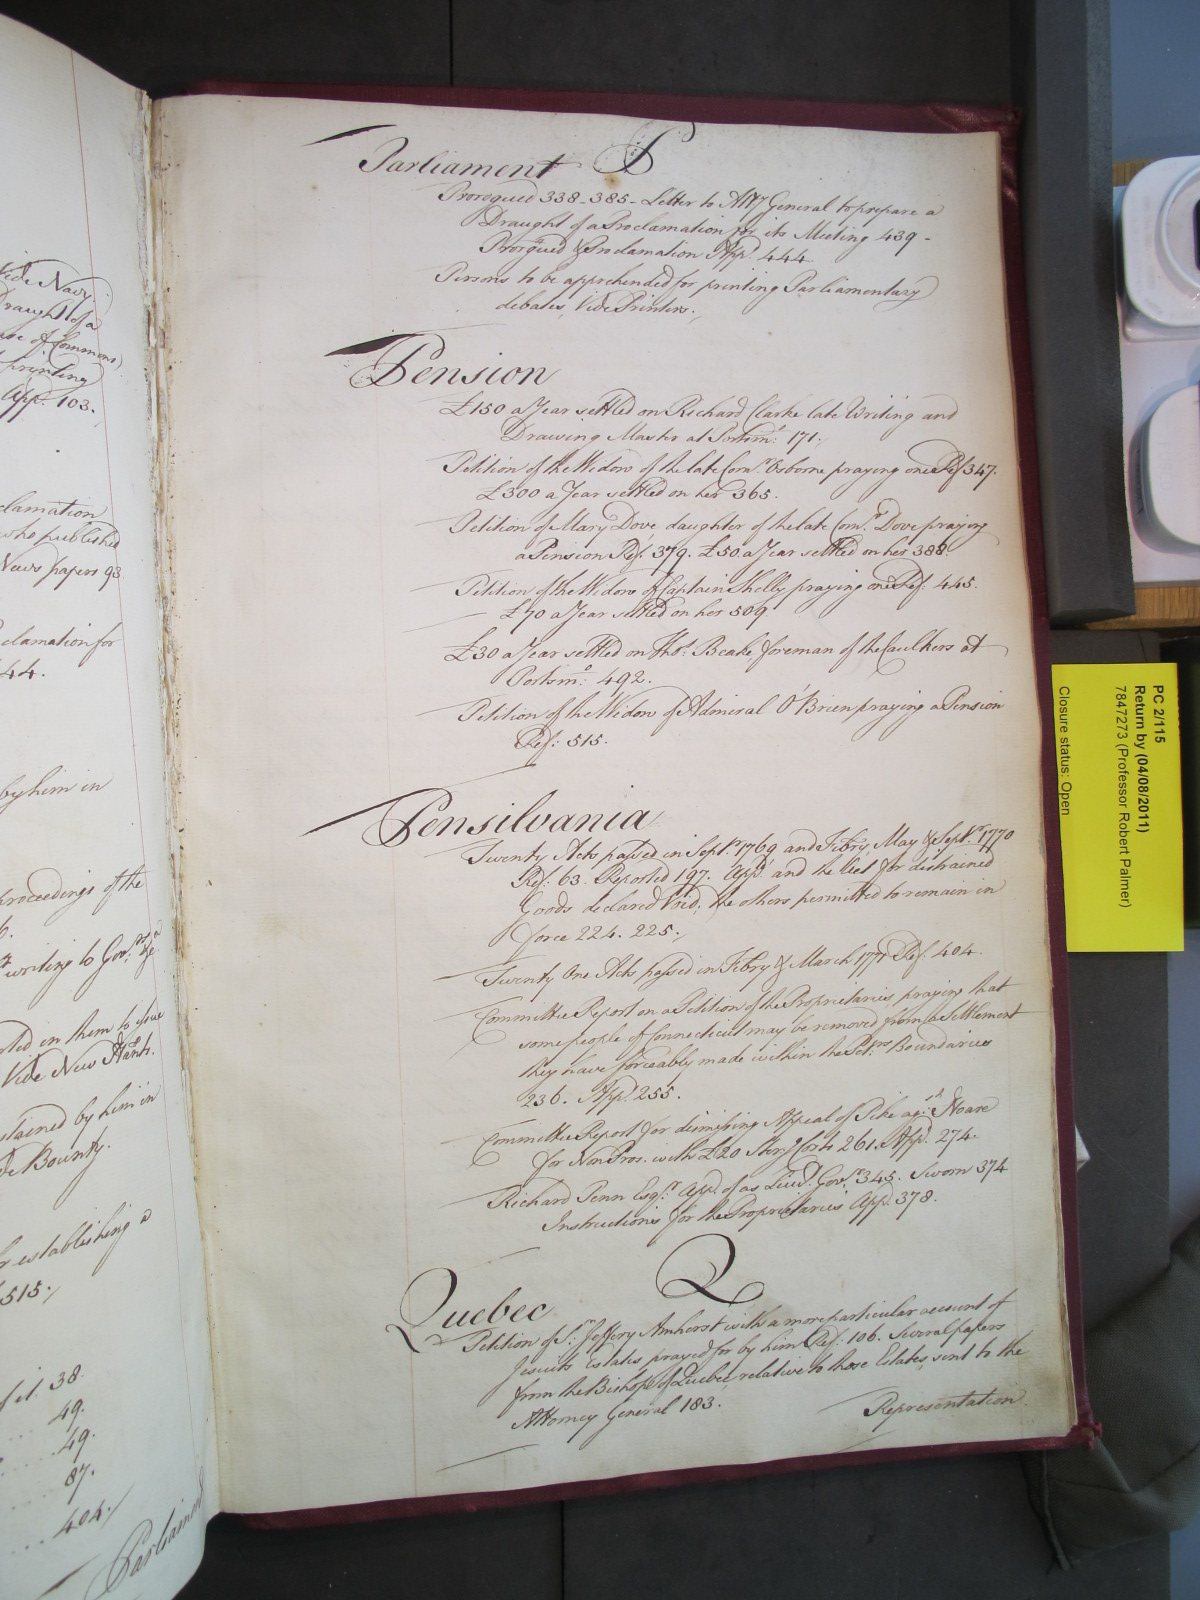 Vide Navy
Draught of a
House of Commons
printing
App. 103.
clamation
who published
News papers 93
clamation for
44.
by him in
proceedings of the
writing to Gov.rs &c.a
in them to
Vide New Hamp.
by him in
Bounty.
establishing a
515./
38.
49.
49.
87.
404./
Parliament
P
Parliament
Prorogued 338_385_ Letter to Atty General to prepare a
Draught of a Proclamation for its Meeting 439 _
Prorogued & Proclamation App.d 444
Persons to be apprehended for printing Parliamentary
debates, Vide Printers./
Pension
£150 a Year settled on Richard Clarke late Writing and
Drawing Master at Portsm.o 171./
Petition of the Widow of the late Com.r Osborne praying one Ref.d 347.
£300 a Year settled on her 365.
Petition of Mary Dove daughter of the late Com.r Dove praying
a Pension Ref.d 379. £50 a Year settled on her 388.
Petition of the Widow of Captain Shelly praying one Ref.d 445.
£70 a Year settled on her 509.
£30 a Year settled on Tho.s Beake foreman of the Caulkers at
Portsm.o 492.
Petition of the Widow of Admiral O'Brien praying a Pension
Ref.d 515.
Pensilvania
Twenty Acts passed in Sept.r 1769 and Febry, May & Sept.r 1770
Ref.d 63. Reported 197. App.d and the Act for distrained
Goods declared Void, the others permitted to remain in
force 224. 225./
Twenty One Acts passed in Febry & March 1771 Ref.d 404.
Committee Report on a Petition of the Proprietaries praying that
some people of Connecticut may be removed from a Settlement
they have forceably made within the Pet.rs Boundaries
236. App.d 255.
Committee Report for dismissing Appeal of Pike ag.st Hoare
for Non Pros. with £20 Sterg Costs 261. App.d 274.
Richard Penn Esq.r App.d of as Lieu.t Gov.r 345. Sworn 374
Instructions for the Proprietaries App.d 378.
Q
Quebec
Petition of S.r Jeffery Amherst with a more particular account of
Jesuits Estates prayed for by him Ref.d 106. Several papers
from the Bishop of Quebec, relative to those Estates, sent to the
Attorney General 183.
Representation
PC 2/115
Return by (04/08/2011)
7847273 (Professor Robert Palmer)
Closure status: Open